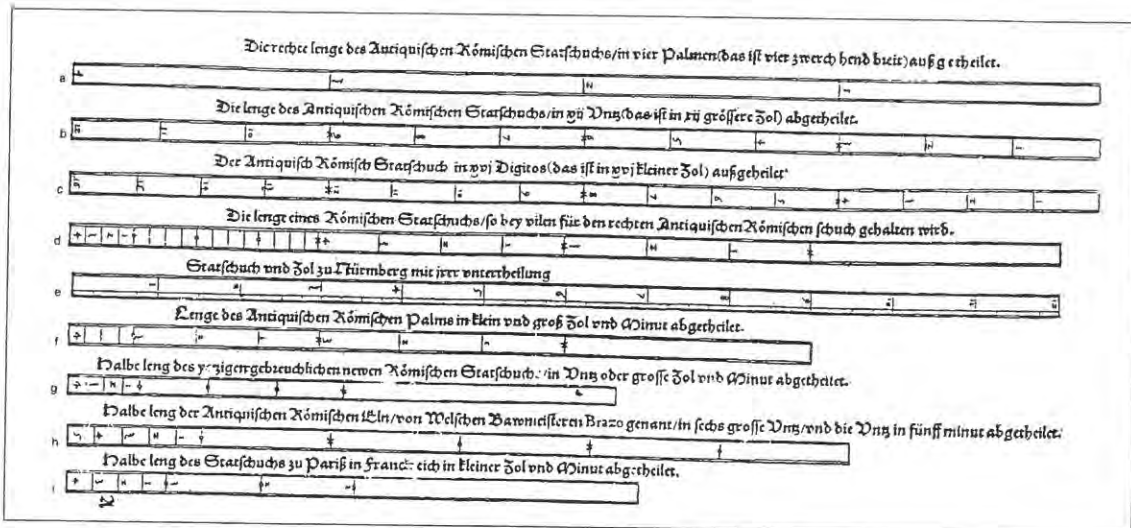 Die rechte lenge des Antiquischen Römischen Statschuchs/in vier Palmen(das ist vier zwerch hend breit)außgetheilet.
a
Die lenge des Antiquischen Römischen Statschuchs/in xij Vntz(das ist in xij grössere Zol) abgetheilet.
b
Der Antiquisch Römisch Statschuch in xvj Digitos(das ist in xvj kleiner Zol) außgeheilet
c
Die lenge eines Römischen Statschuchs/so bey vilen für den rechten Antiquischen Römischen schuch gehalten wird.
d
Statschuch vnd Zol zu Nürmberg mit jrer vntertheilung
e
Lenge des Antiquischen Römischen Palms in klein vnd groß Zol vnd Minut abgetheilet.
f
Halbe leng des newen Römischen Statschuch /in Vntz oder grosse Zol vnd Minut abgetheilet.
g
Halbe leng der Antiquischen Römischen Eln/von Welschen Bawmeisteren Brazo genant/in sechs grosse Vntz/vnd die Vntz in fünff minut abgetheilet.
h
Halbe leng des Statschuchs zu Pariß in Franckreich in kleiner Zol vnd Minut abgetheilet.
i